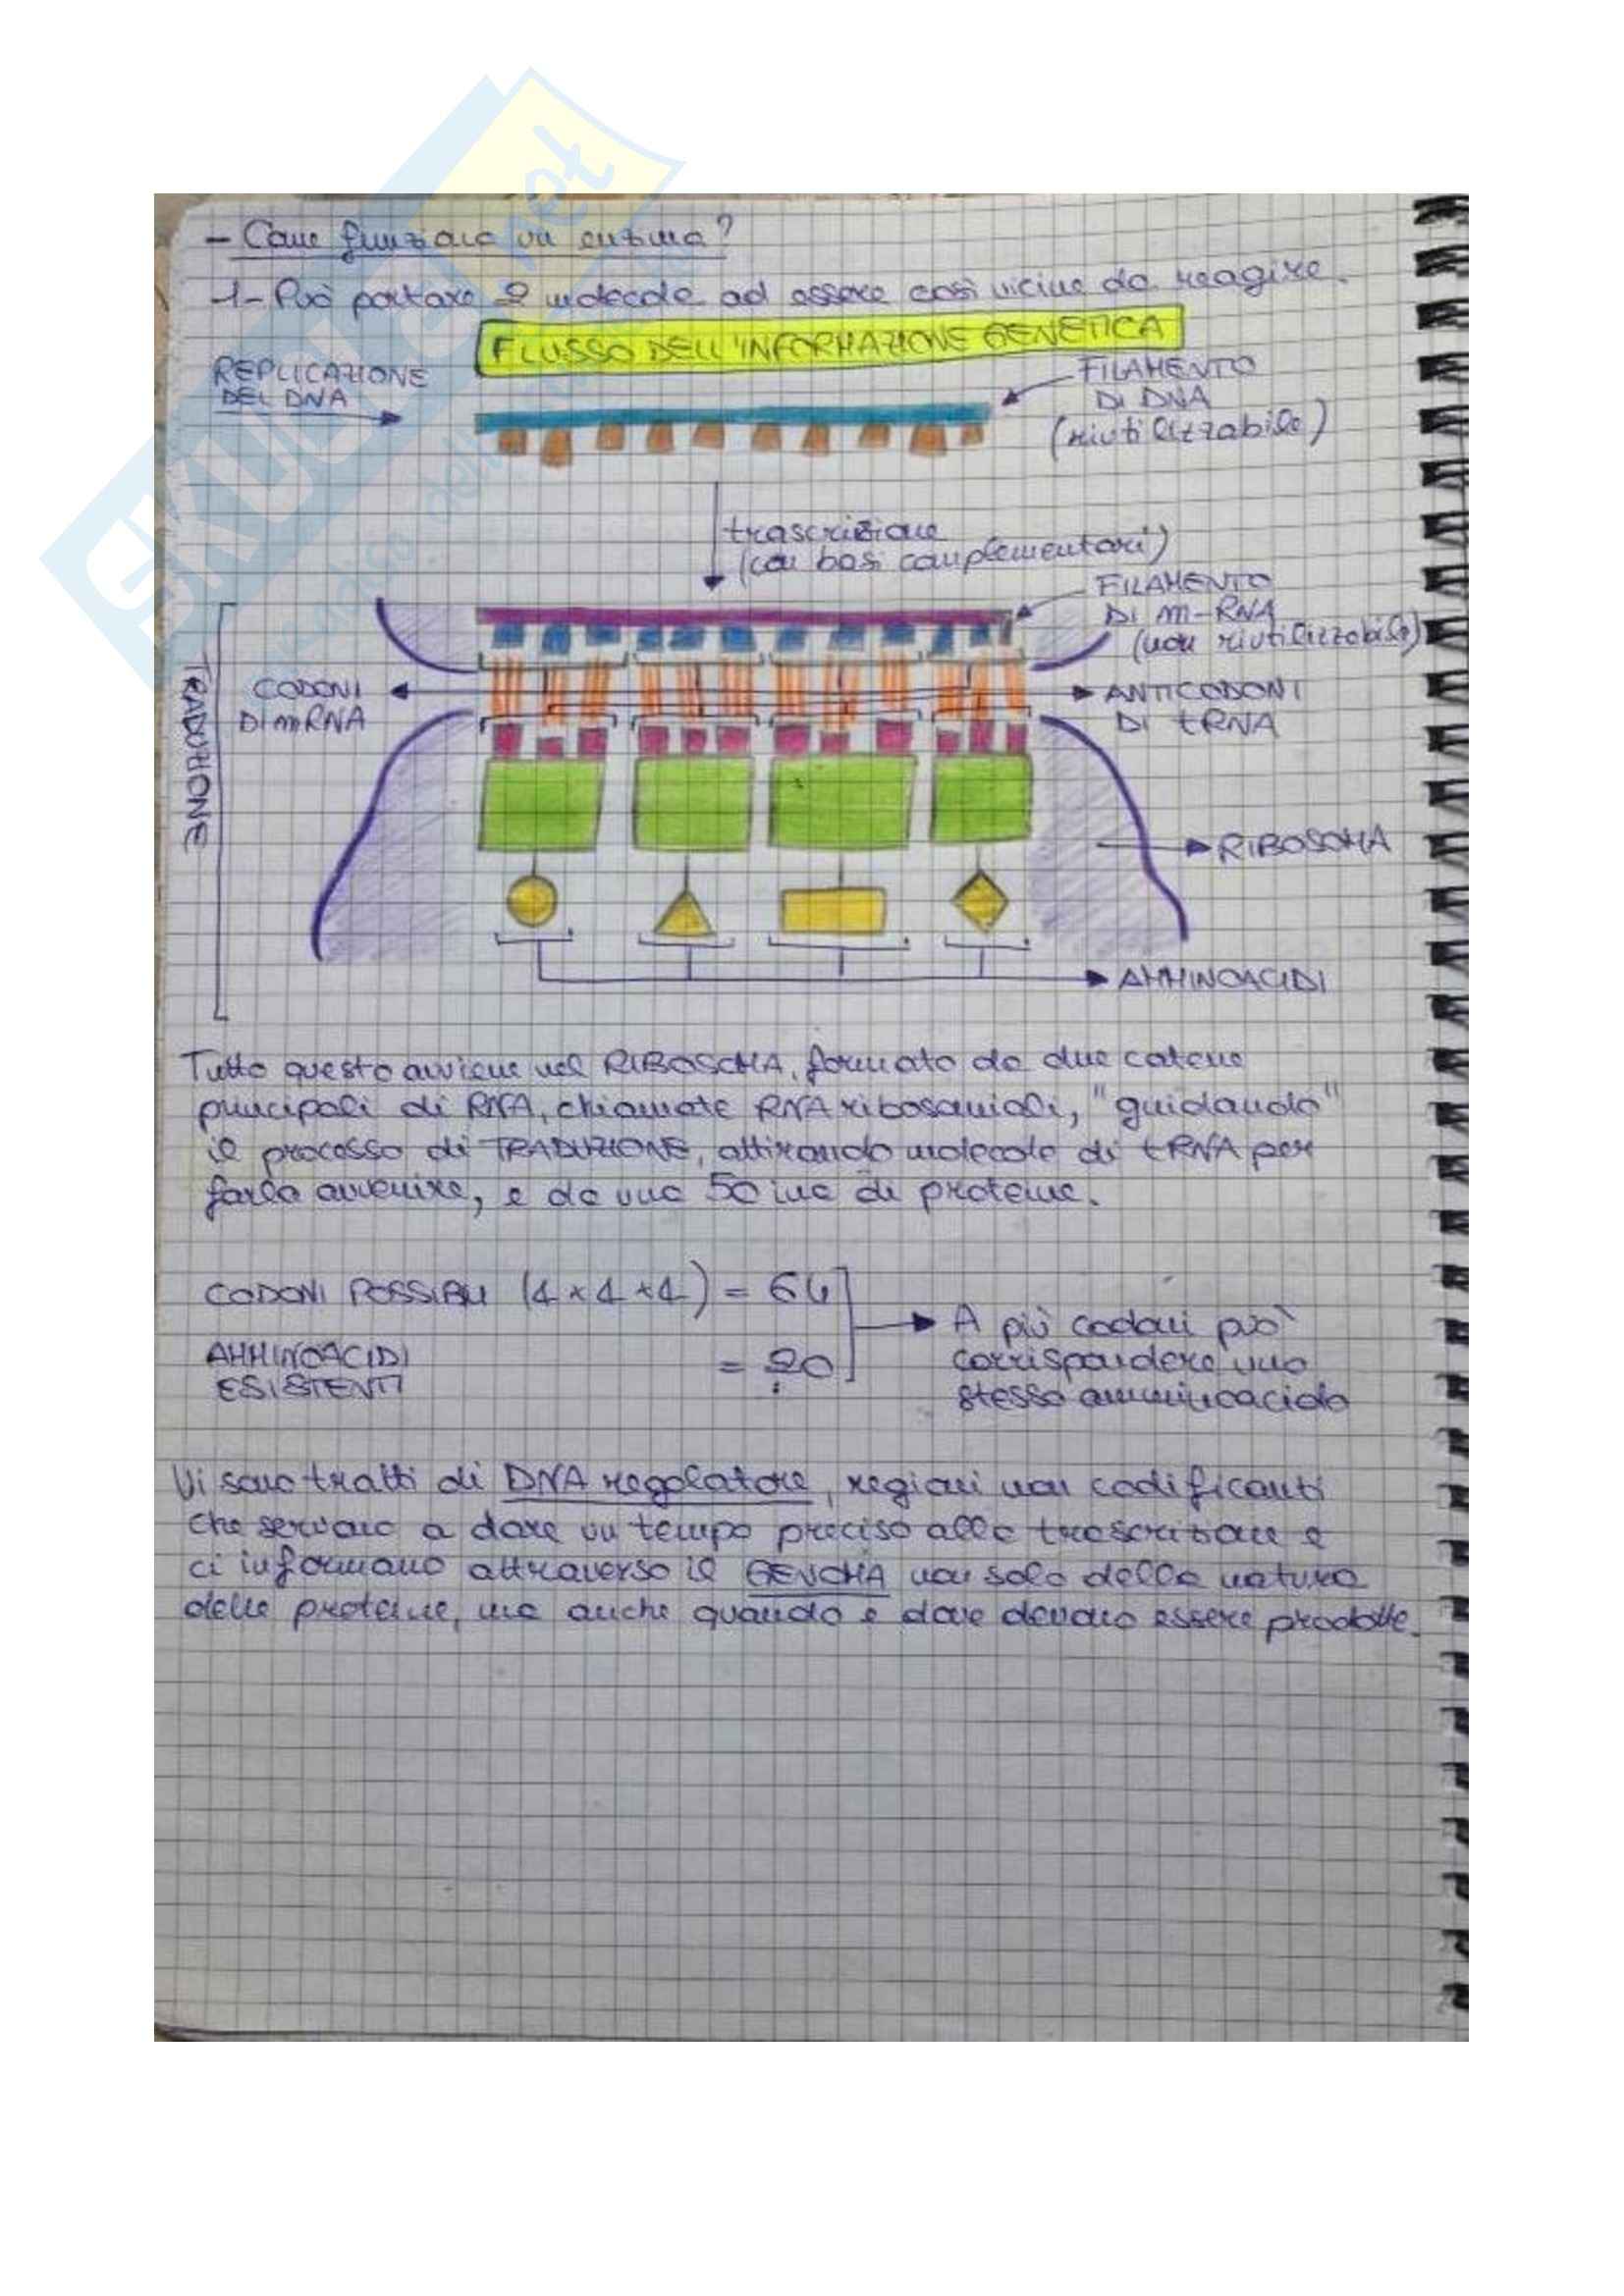 - Come funziona un enzima?
1- Può portare 2 molecole ad essere così vicine da reagire.
FLUSSO DELL'INFORMAZIONE GENETICA
REPLICAZIONE
DEL DNA
FILAMENTO
DI DNA
(riutilizzabile)
trascrizione
(con basi complementari)
FILAMENTO
DI m-RNA
(non riutilizzabile)
TRADUZIONE
CODONI
DI mRNA
ANTICODONI
DI tRNA
RIBOSOMA
AMMINOACIDI
Tutto questo avviene nel RIBOSOMA, formato da due catene
principali di RNA, chiamate RNA ribosomiali, "guidando"
il processo di TRADUZIONE, attirando molecole di tRNA per
farla avvenire, e da una 50ina di proteine.
CODONI POSSIBILI (4 x 4 x 4) = 64
AMMINOACIDI
ESISTENTI = 20
A più codoni può
corrispondere uno
stesso amminoacido
Vi sono tratti di DNA regolatore, regioni non codificanti
che servono a dare un tempo preciso alla trascrizione e
ci informano attraverso il GENOMA non solo della natura
delle proteine, ma anche quando e dove devono essere prodotte.
SKUOLA.net